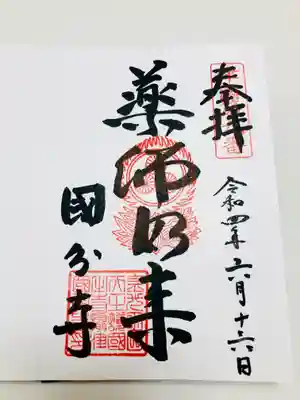 奉拝
令和四年六月十六日
薬師如来
國分寺